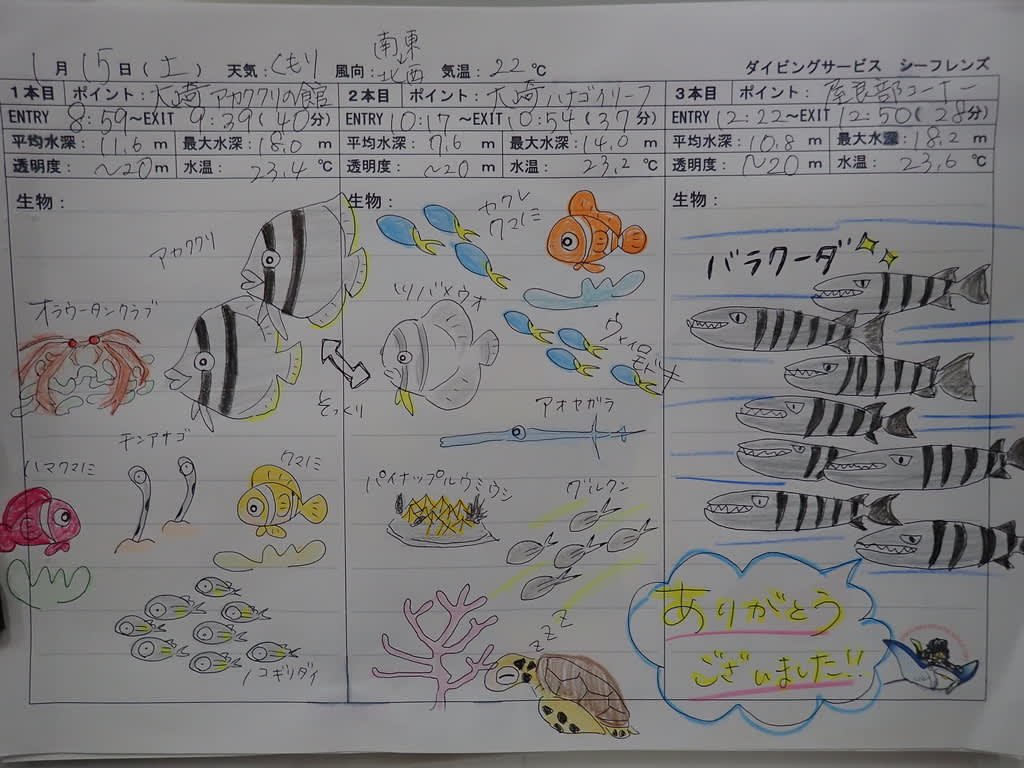 1月15日(土) 天気:くもり 風向:南東→北西 気温:22℃ ダイビングサービス シーフレンズ
1本目 ポイント:大崎アカククリの館 2本目 ポイント:大崎ハナゴイリーフ 3本目 ポイント:屋良部コーナー
ENTRY 8:59~EXIT 9:39(40分) ENTRY 10:17~EXIT 10:54(37分) ENTRY 12:22~EXIT 12:50(28分)
平均水深:11.6m 最大水深:18.0m 平均水深:7.6m 最大水深:14.0m 平均水深:10.8m 最大水深:18.2m
透明度:~20m 水温:23.4℃ 透明度:~20m 水温:23.2℃ 透明度:~20m 水温:23.6℃
生物: 生物: 生物:
アカククリ
オラウータンクラブ
チンアナゴ
ハマクマノミ
クマノミ
ノコギリダイ
そっくり
カクレ
クマノミ
ツバメウオ
ウメイロ
モドキ
アオヤガラ
パイナップルウミウシ
グルクン
zzz
バラクーダ
ありがとう
ございました!!